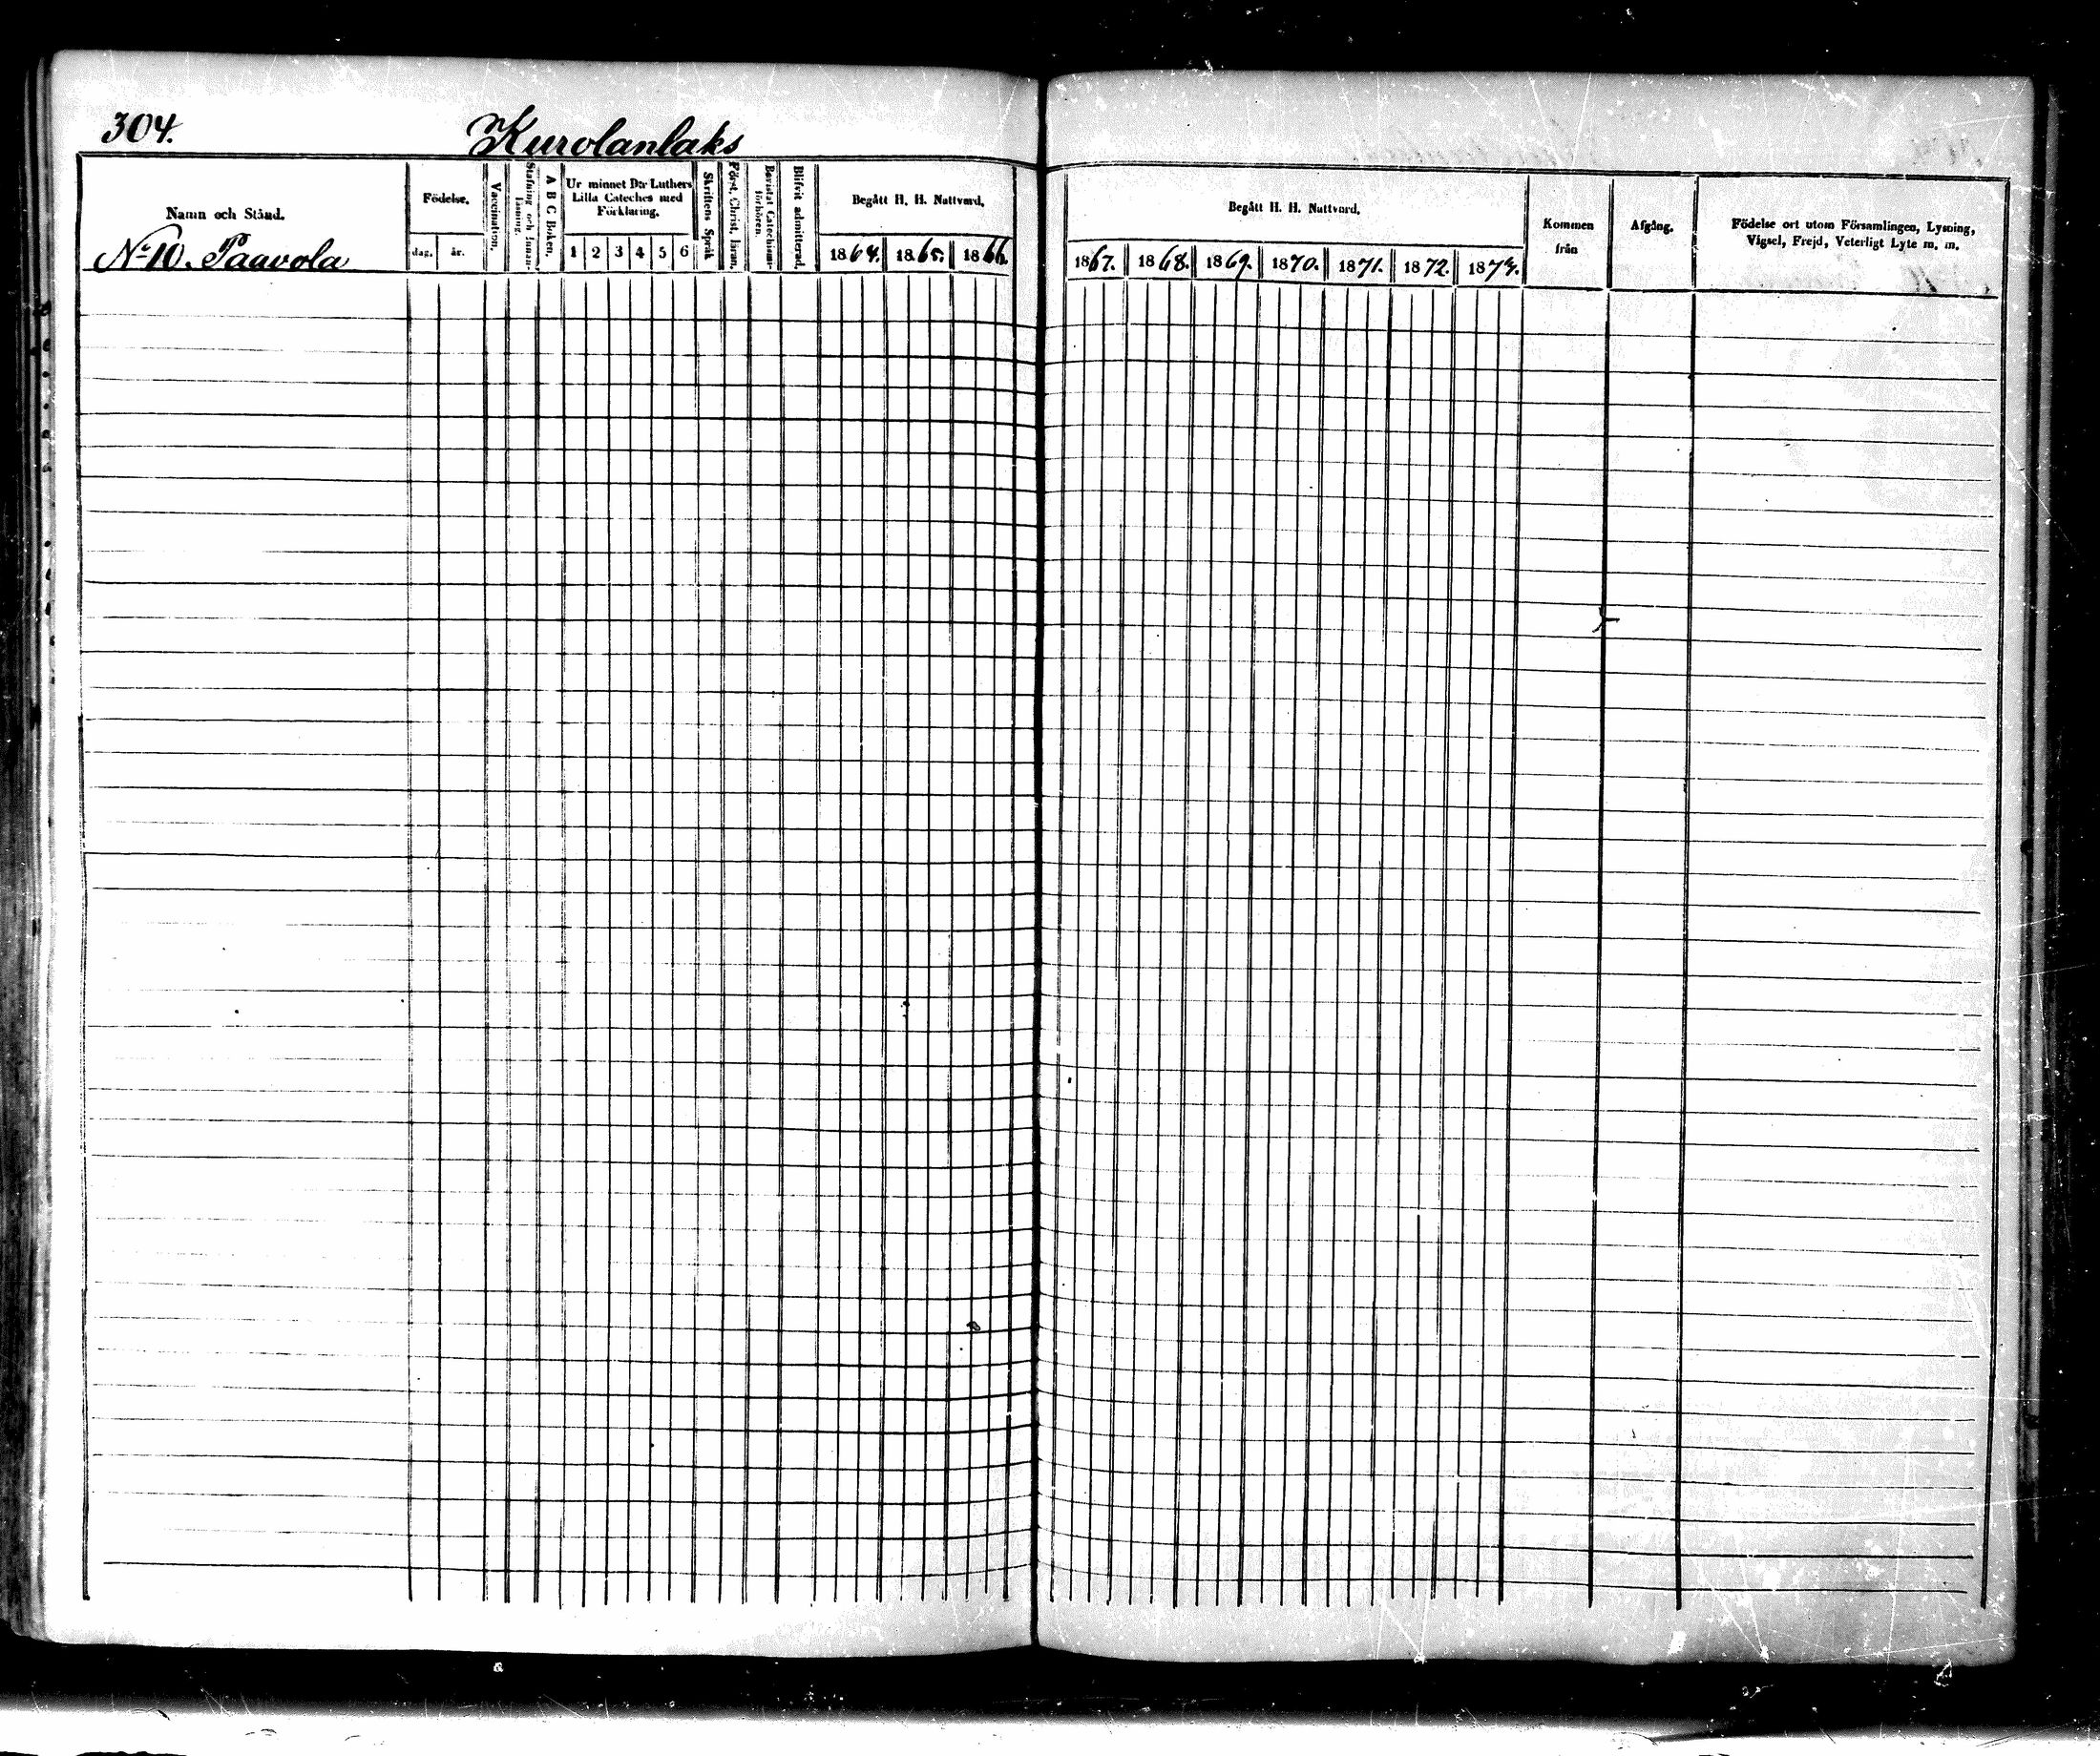 304.
Kurolanlaks
Namn och Stånd.
No 10. Paavola
Födelse.
dag. år.
Vaccination.
Stafning och Innanläsning.
A B C Boken.
Ur minnet D:r Luthers
Lilla Cateches med
Förklaring.
1 2 3 4 5 6
Skriftens Språk
Först. Christ. läran.
Bevistat Catechismiförhören.
Blifvit admitterad.
Begått H. H. Nattvard.
1864. 1865. 1866.
Begått H. H. Nattvard.
1867. 1868. 1869. 1870. 1871. 1872. 1873.
Kommen
från
Afgång.
Födelse ort utom Församlingen, Lysning,
Vigsel, Frejd, Veterligt Lyte m. m.